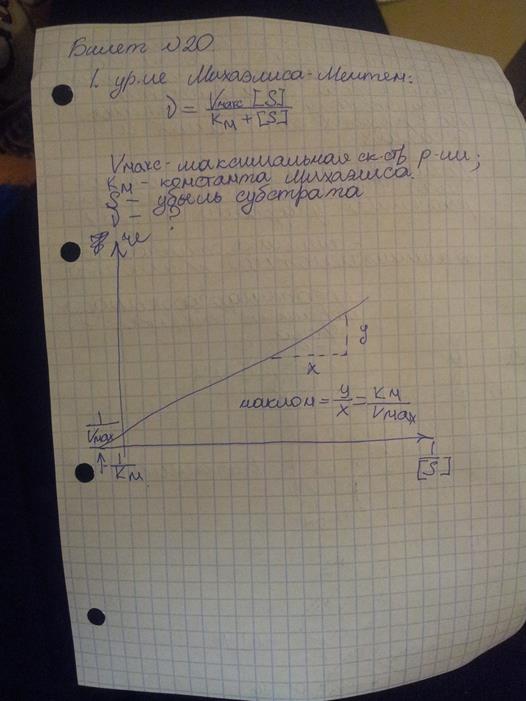 Билет №20.
1. ур-ие Михаэлиса-Ментен:
υ = Vмакс [S] / Kм + [S]
Vмакс - максимальная ск-ть р-ии;
Kм - константа Михаэлиса.
S - убыль субстрата
υ - ?
y
x
наклон = y/x = Kм/Vмах
1/Vмах
1/Kм
1/[S]